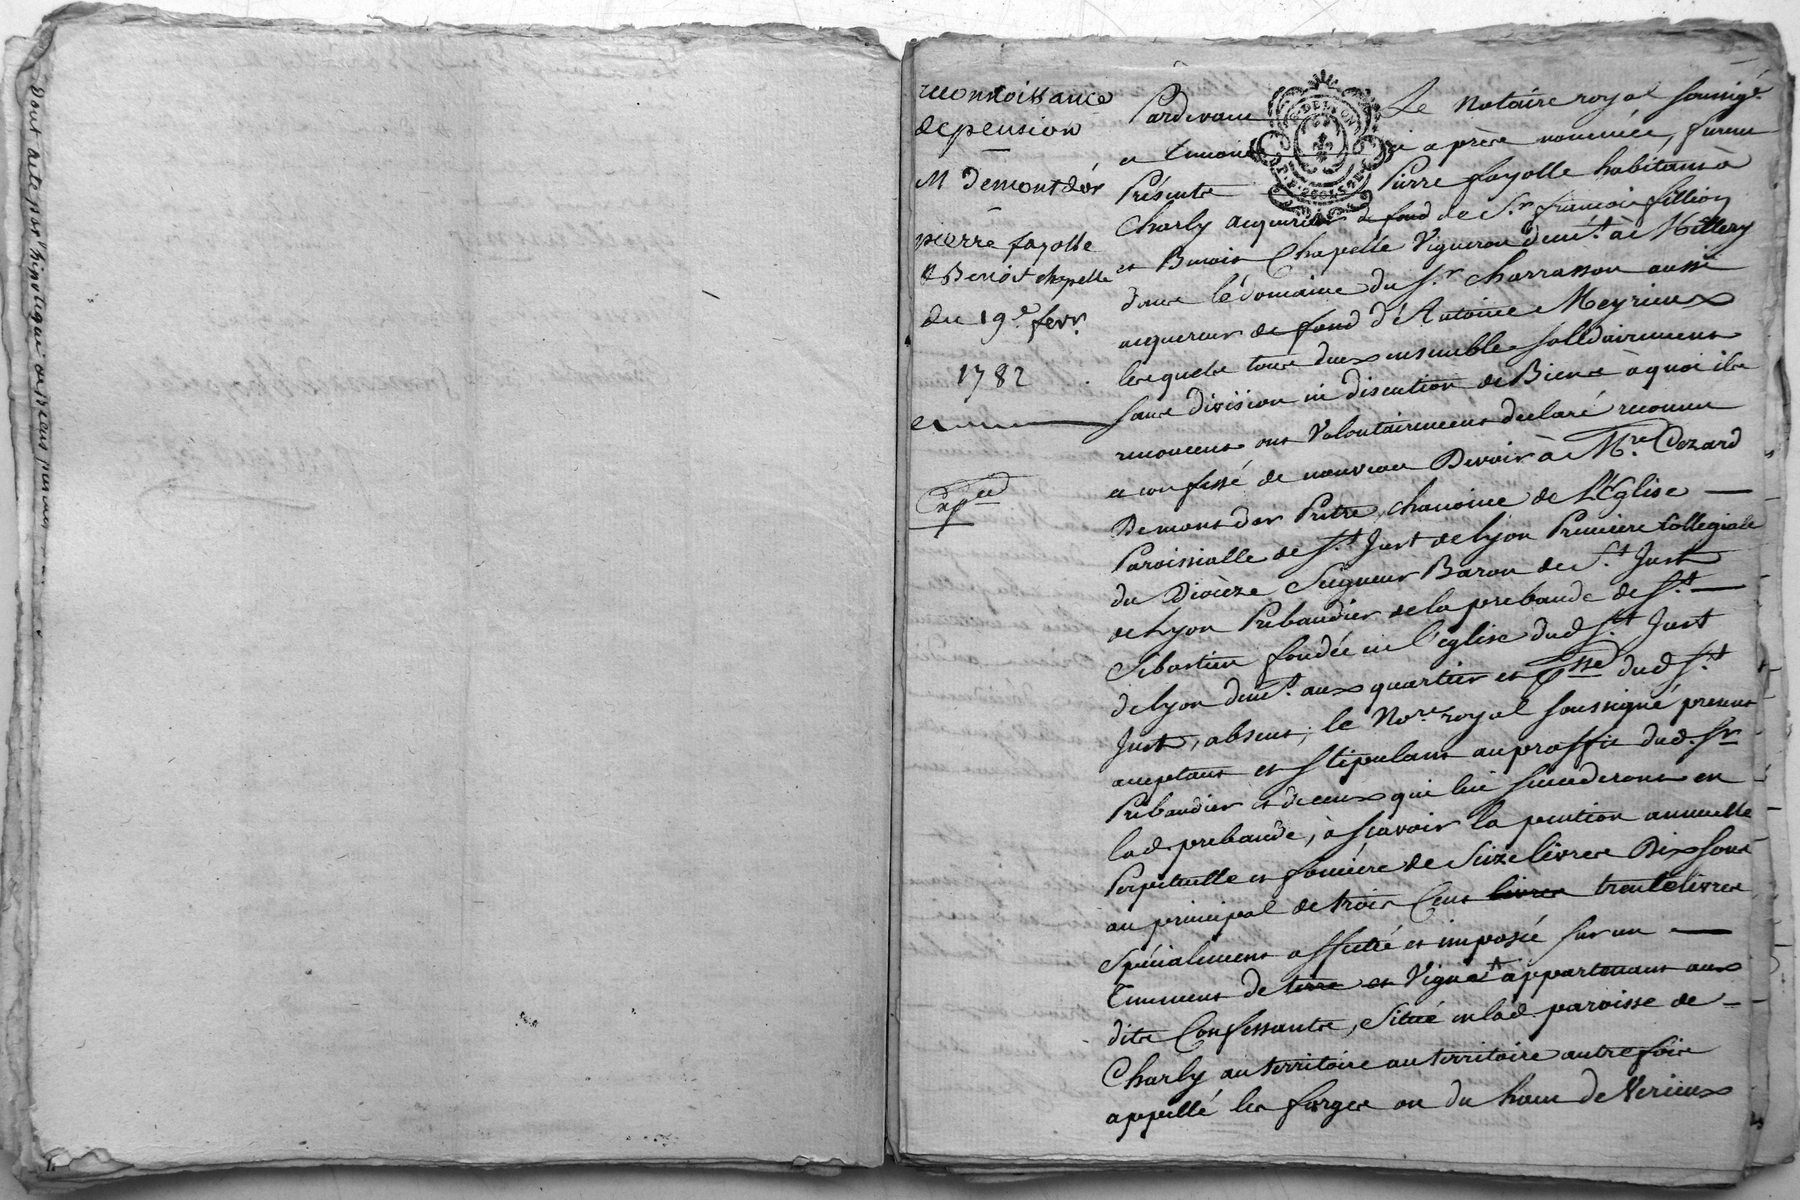 Dont acte par hipoteque
reconnoissance
de pension
M Demontd'or
pierre fayolle
& Benoit chapelle
du 19e. fevr.
1782
Expéd
Pardevant Le Notaire royal soussigé
et temoins ci après nommés, furent
Présents Pierre fayolle habitant à
Charly acquereur de fond de Sr. francois fillion
et Benoit Chapelle Vigneron demt. à Millery
dans le domaine du Sr. charrasson aussi
acquereur de fond d'Antoine Meyrieux
lesquels tous deux ensemble solidairement
sans division ni discution de Biens à quoi ils
renoncent ont Volontairement declaré reconnu
et confessé de nouveau Devoir à Mre. Cozard
Demont d'or Prêtre, chanoine de L'Eglise
Paroissialle de St. Just de Lyon Premiere Collegiale
du Diocèze Seigneur Baron de St. Just
de Lyon Prébandier de la prebande de St.
Sébastien fondée en l'eglise dud St. Just
de Lyon demt. aux quartier et psse dud St.
Just, absent, le Nore. royal soussigné present
acceptant et Stipulant au proffit dud. Sr.
Prébandier et de ceux qui lui succederont en
lad. prebande, à scavoir la pention annuelle
Perpetuelle et fonciére de Seize livres Dix sous
au principal de trois Cent livres trente livres
Spécialement affecté et imposée sur un
Tenement de terre et Vigne appartenant aux
dits Confessants, Situé en lad. paroisse de
Charly au territoire au territoire autrefois
appellé les forges ou du haut de Verieux